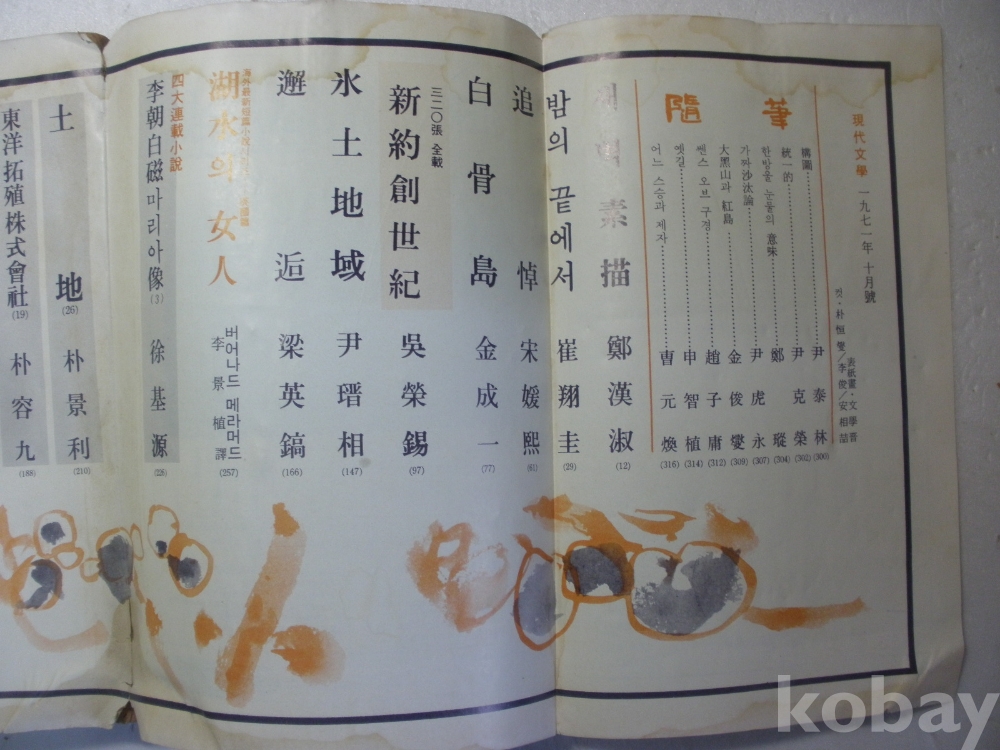 現代文學 一九七一年 十月號
表紙畫·文學晋
컷·朴恒燮/李俊/安相喆
隨筆
構圖 尹泰林 (300)
統一的 尹克榮 (302)
한방울 눈물의 意味 鄭瑽 (304)
가짜沙汰論 尹虎永 (307)
大黑山과 紅島 金俊燮 (309)
쎈스 오브 구경 趙子庸 (312)
옛길 申智植 (314)
어느 스승과 제자 曺元煥 (316)
素描 鄭漢淑 (12)
밤의 끝에서 崔翔圭 (29)
追悼 宋媛熙 (61)
白骨島 金成一 (77)
三二〇張 全載
新約創世紀 吳榮錫 (97)
氷土地域 尹瑨相 (147)
邂逅 梁英鎬 (166)
海外最新短篇小說
湖水의 女人 버어나드 메라머드 李景植 譯 (257)
四大連載小說
李朝白磁마리아像 (3) 徐基源 (28)
土地 (26) 朴景利 (210)
東洋拓殖株式會社 (19) 朴容九 (188)
kobay